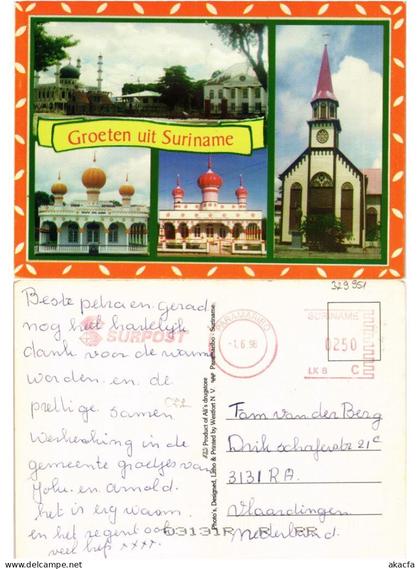 Groeten uit Suriname
329951
Beste petra en gerad
nog het hartelijk
dank voor de warme
worden en de
prettige samen
werking in de
gemeente groetjes van
John en Arnold
het is erg warm
en het regent ook
veel liefs xxxx
SURPOST
PARAMARIBO
-1.6.98
SURINAME
0250
LK 8 C
Product of Ali's drugstore
Photo's, Designed, Litho & Printed by Westfort N.V. Paramaribo - Suriname
Tom van der Berg
Dirk schaferstr 21c
3131 RA
Vlaardingen
Nederland
3131R
www.delcampe.net
akacfa